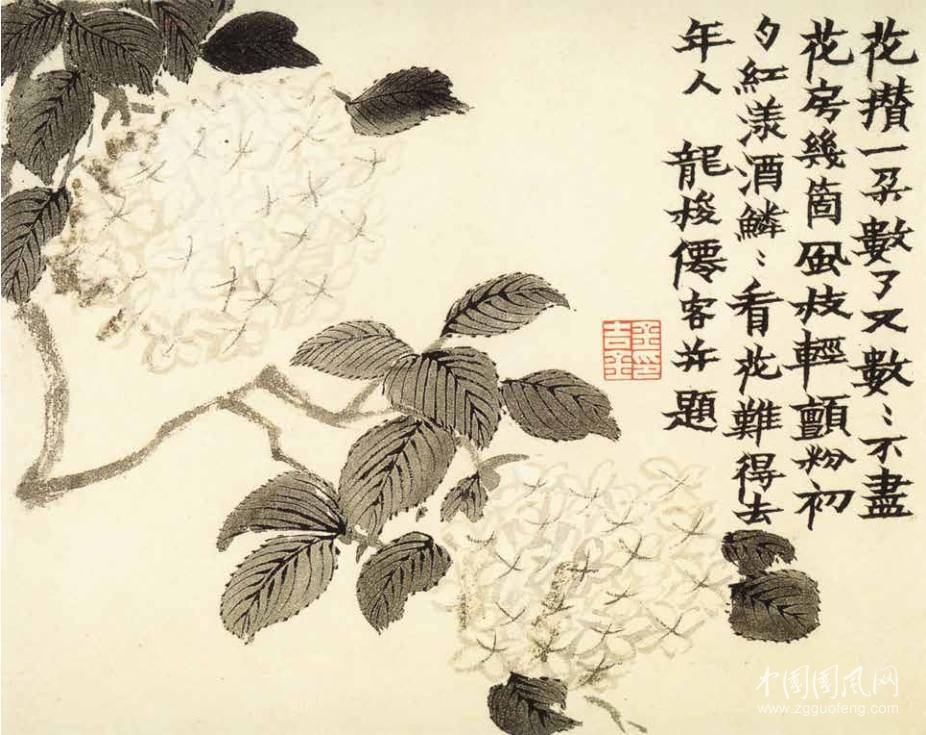 花攢一朵數了又數〻不盡
花房幾箇風枝輕顫粉初
勻紅漾酒鱗〻看花難得去
年人 龍梭僊客并題
金印吉金
中国国风网
www.zgguofeng.com